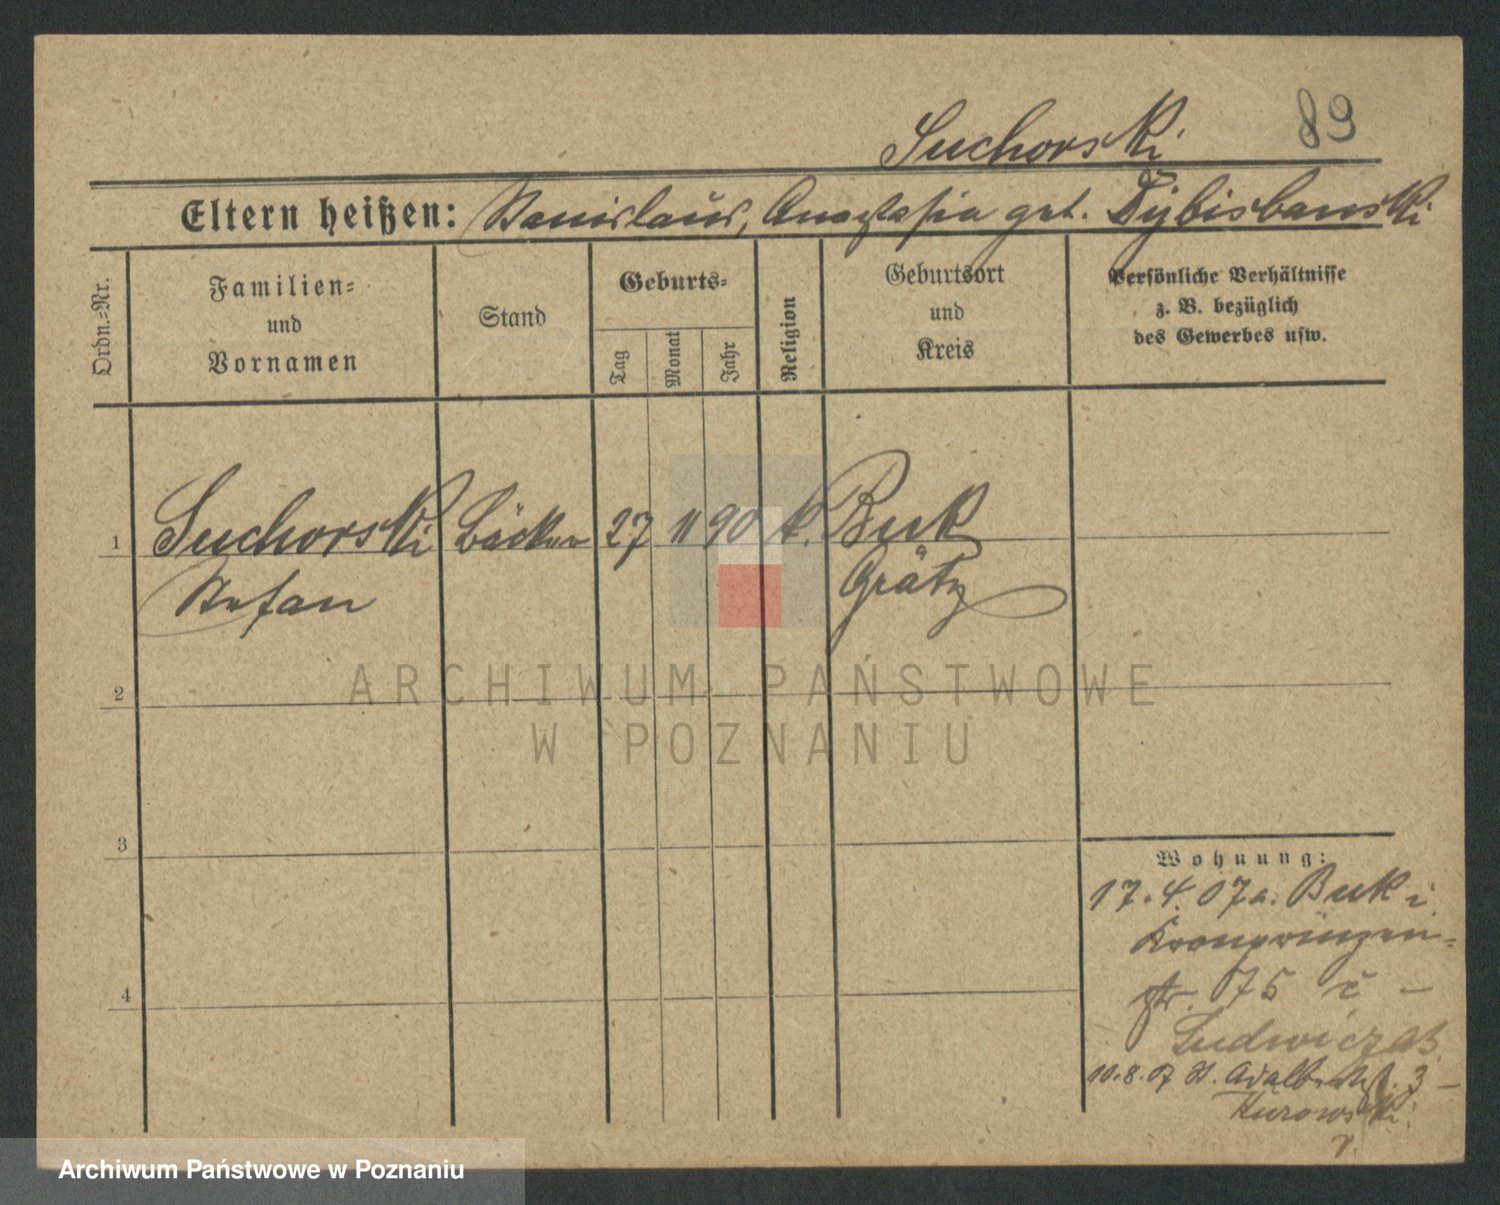 Suchorski
89
Eltern heißen: Stanislaus, Anastasia geb. Dybisbanski
Ordn.-Nr.
Familien-
und
Vornamen
Stand
Geburts-
Tag
Monat
Jahr
Religion
Geburtsort
und
Kreis
Persönliche Verhältnisse
z. B. bezüglich
des Gewerbes usw.
1
Suchorski Bäcker 27 11 90 k. Buk
Stefan Grätz
2
ARCHIWUM PAŃSTWOWE
W POZNANIU
3
4
Wohnung:
17.4.07 a. Buk i.
Kronprinzen-
str. 75
Ludwiczak
10.8.07 St. Adalbertstr. 3 -
Kurowski
Archiwum Państwowe w Poznaniu